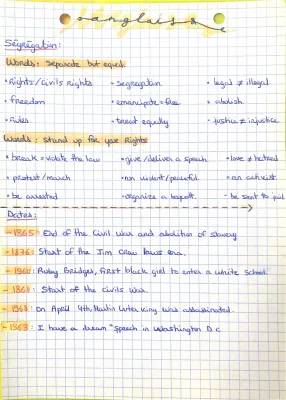 anglais
Ségrégation:
Words: Separate but equal.
• Rights/Civils Rights • segregation • legal ≠ illegal
• freedom • emancipate = free • abolish.
• rules • treat equally • justice ≠ injustice
Words: Stand up for your Rights
• break = violate the law • give/deliver a speech • love ≠ hatred
• protest/march • non violent/peaceful. • an activist.
• be arrested • organize a boycott. • be sent to jail
Dates:
- 1865: End of the Civil war and abolition of slavery
- 1876: Start of the Jim Crow laws era.
- 1960: Ruby Bridges, first black girl to enter a white School.
- 1861: Start of the civils war.
- 1968: On April 4th, Martin Luter king was assassinated.
- 1963: I have a dream" speech in Washington D.C